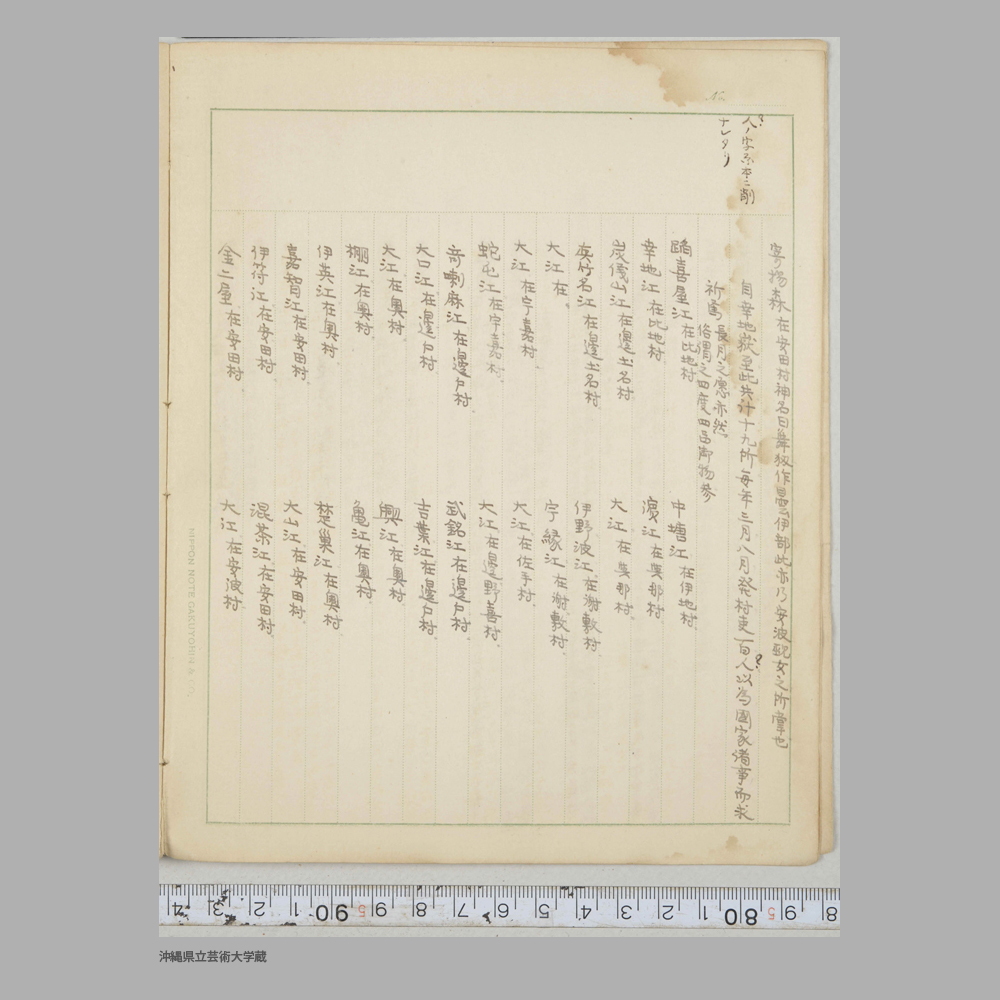 人ノ字原本ニ削
ナシタリ
寄揚森 在安田村神名曰 作思云伊部此亦乃安波 女之所掌也
自幸地嶽至此共計十九所毎年三月八月発村吏百人以為國家諸事而求
祈焉 長月之愿亦然
俗謂之四度四品御物参
喜屋江 在比地村
中塘江 在伊地村
幸地江 在比地村
濱江 在與那村
炭儀山江 在邊土名村
大江 在與那村
兵竹名江 在邊土名村
伊野波江 在謝敷村
大江 在
宇縁江 在謝敷村
大江 在宇嘉村
大江 在佐手村
蛇也江 在宇嘉村
大江 在邊野喜村
奇喇麻江 在邊戸村
武銘江 在邊戸村
大口江 在邊戸村
吉葉江 在邊戸村
大江 在奧村
興江 在奧村
棚江 在奧村
亀江 在奧村
伊英江 在奧村
楚巣江 在奧村
嘉智江 在安田村
大山江 在安田村
伊符江 在安田村
混茶江 在安田村
金二屋 在安田村
大江 在安波村
NIPPON NOTE GAKUYOHIN & Co.
4 3 2 1 90 9 5 8 7 6 5 4 3 2 1 80 5 9 8
沖縄県立芸術大学蔵